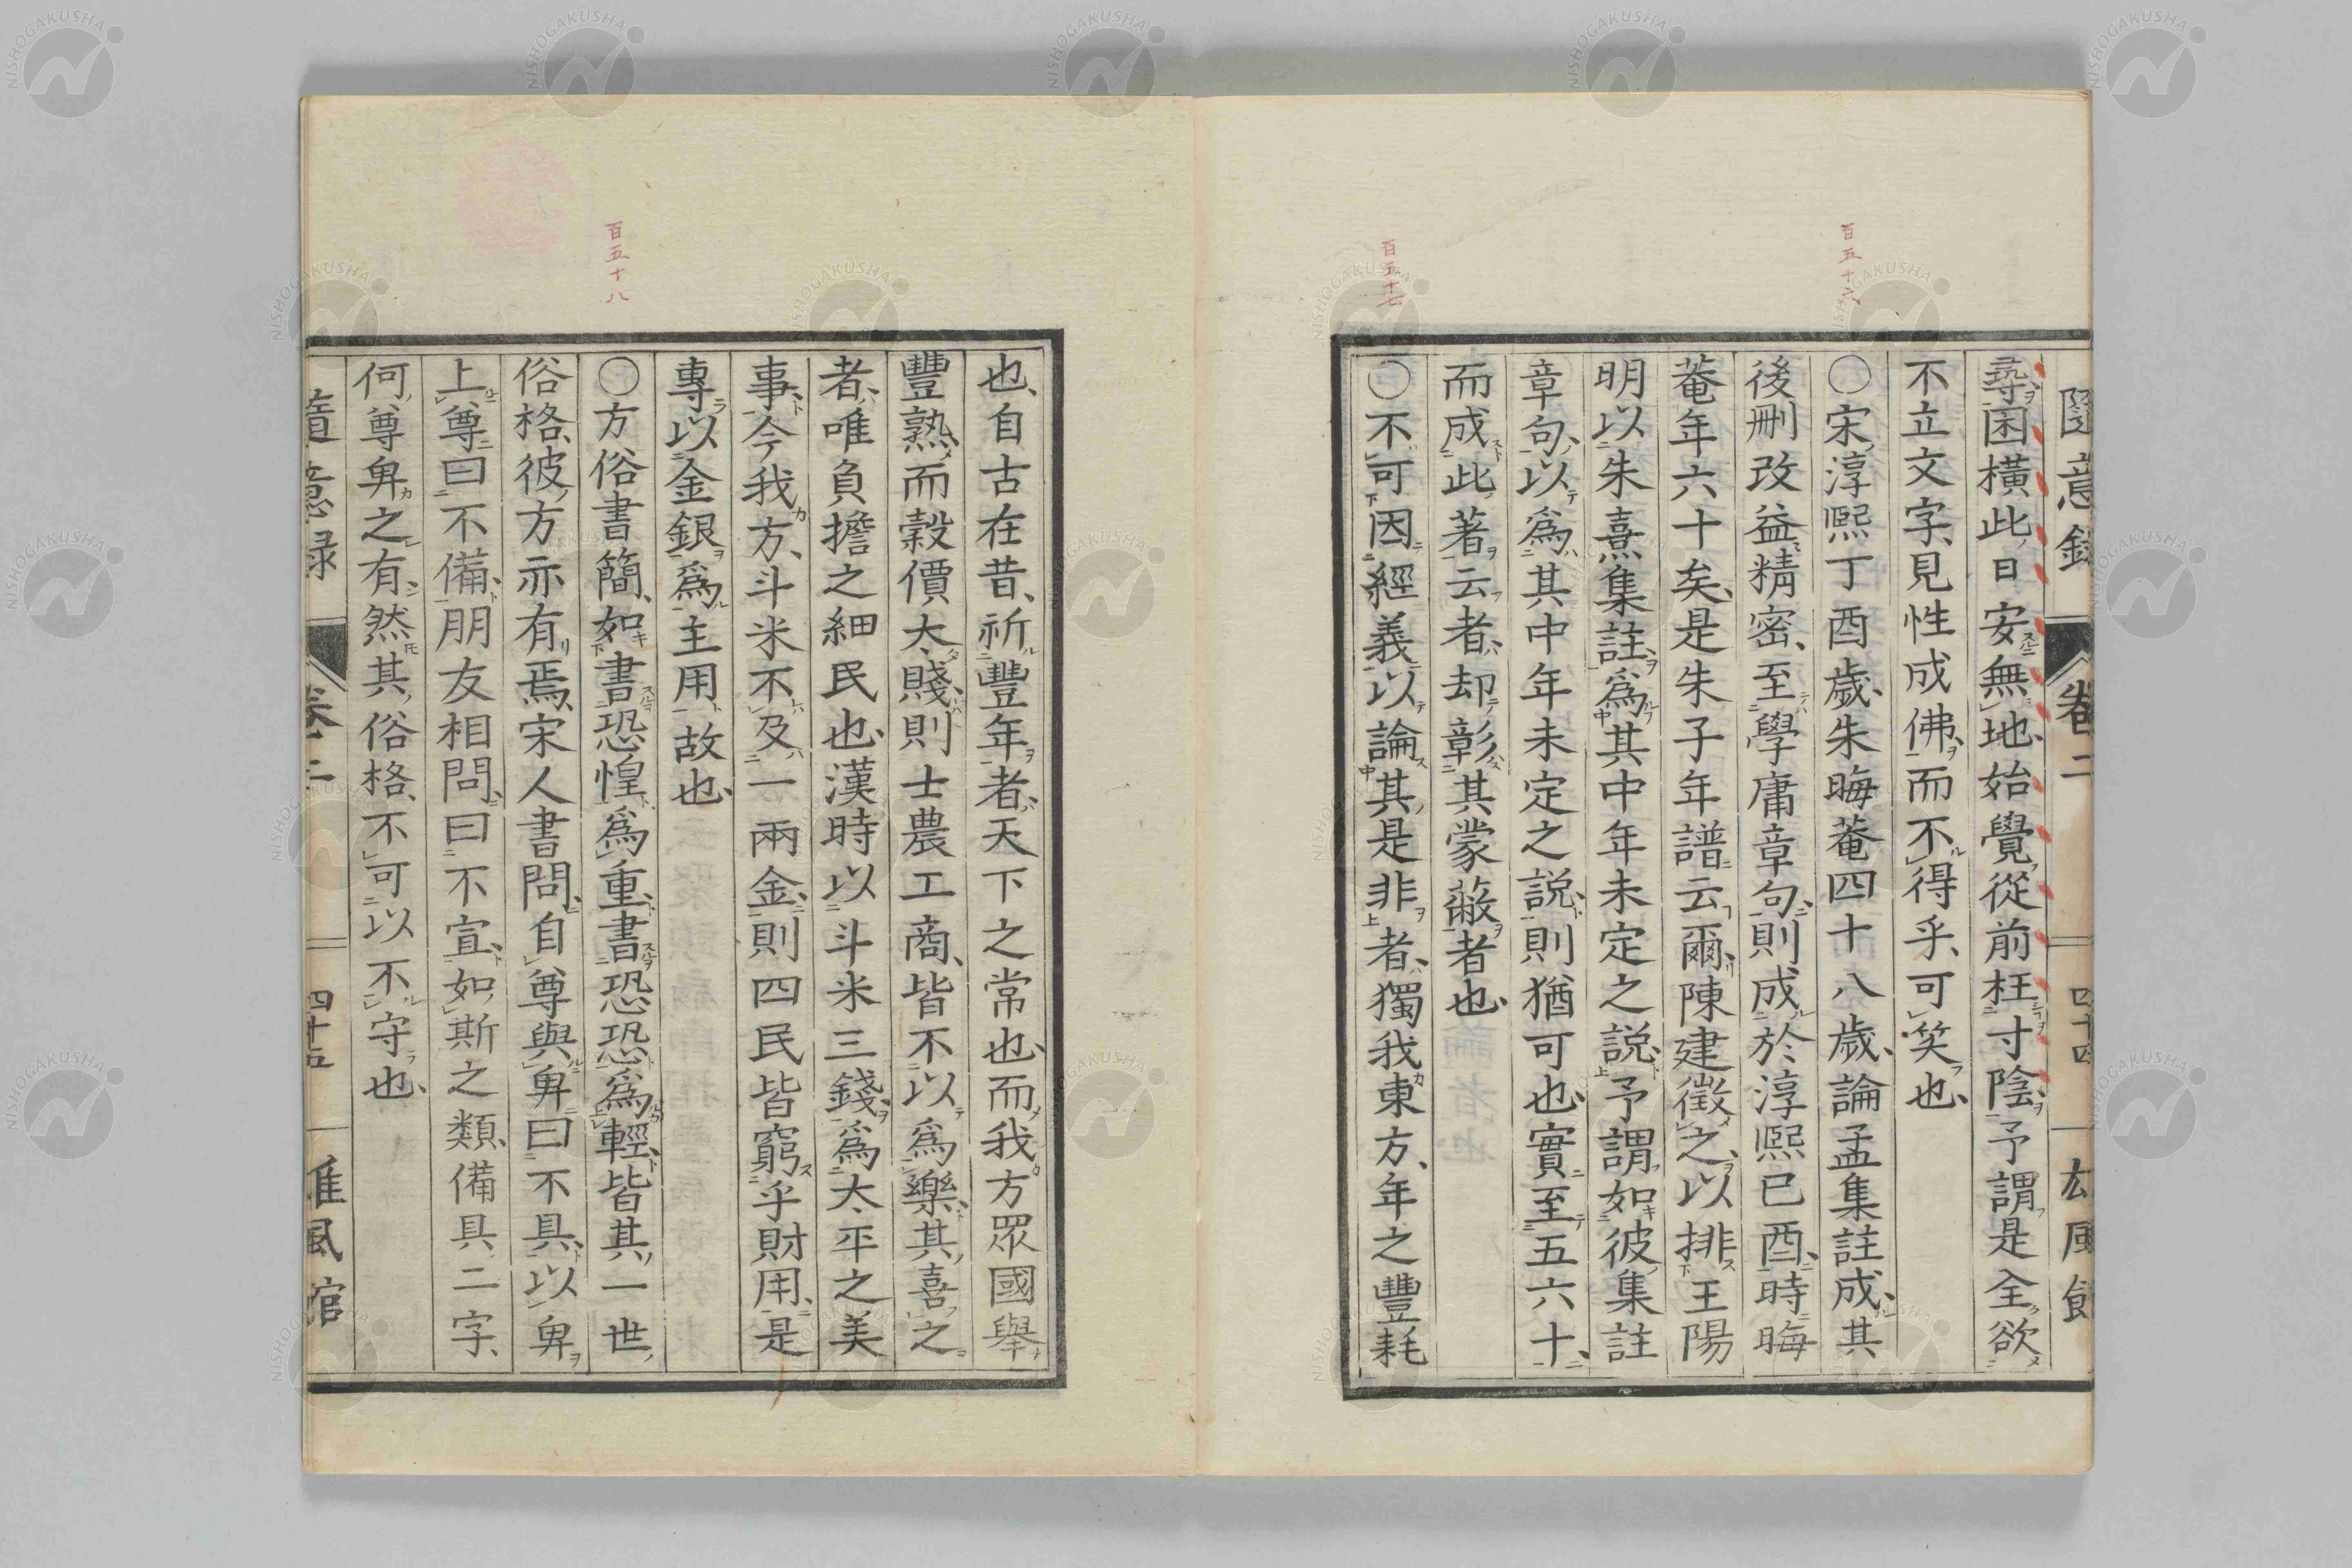 百五十六
百五十七
隨意録 卷二 四十四
尋困横此日安無地始覺從前枉寸陰予謂是全欲
不立文字見性成佛而不得乎可笑也
〇宋淳熙丁酉歳朱晦菴四十八歳論孟集註成其
後刪改益精密至學庸章句則成於淳熙已酉時晦
菴年六十矣是朱子年譜云爾陳建徴之以排王陽
明以朱熹集註爲其中年未定之説予謂如彼集註
章句以爲其中年未定之説則猶可也實至五六十
而成此著云者却彰其蒙蔽者也
〇不可因經義以論其是非者獨我東方年之豐耗
百五十八
也自古在昔祈豐年者天下之常也而我方眾國擧
豐熟而穀價太賤則士農工商皆不以爲樂其喜之
者唯負擔之細民也漢時以斗米三錢爲太平之美
事今我方斗米不及一兩金則四民皆窮乎財用是
專以金銀爲主用故也
〇方俗書簡如書恐惶爲重書恐恐爲輕皆其一世
俗格彼方亦有焉宋人書問自尊與卑曰不具以卑
上尊曰不備朋友相問曰不宣如斯之類備具二字
何尊卑之有然其俗格不可以不守也
隨意録 卷二 四十五 雄風館
NISHOGAKUSHA